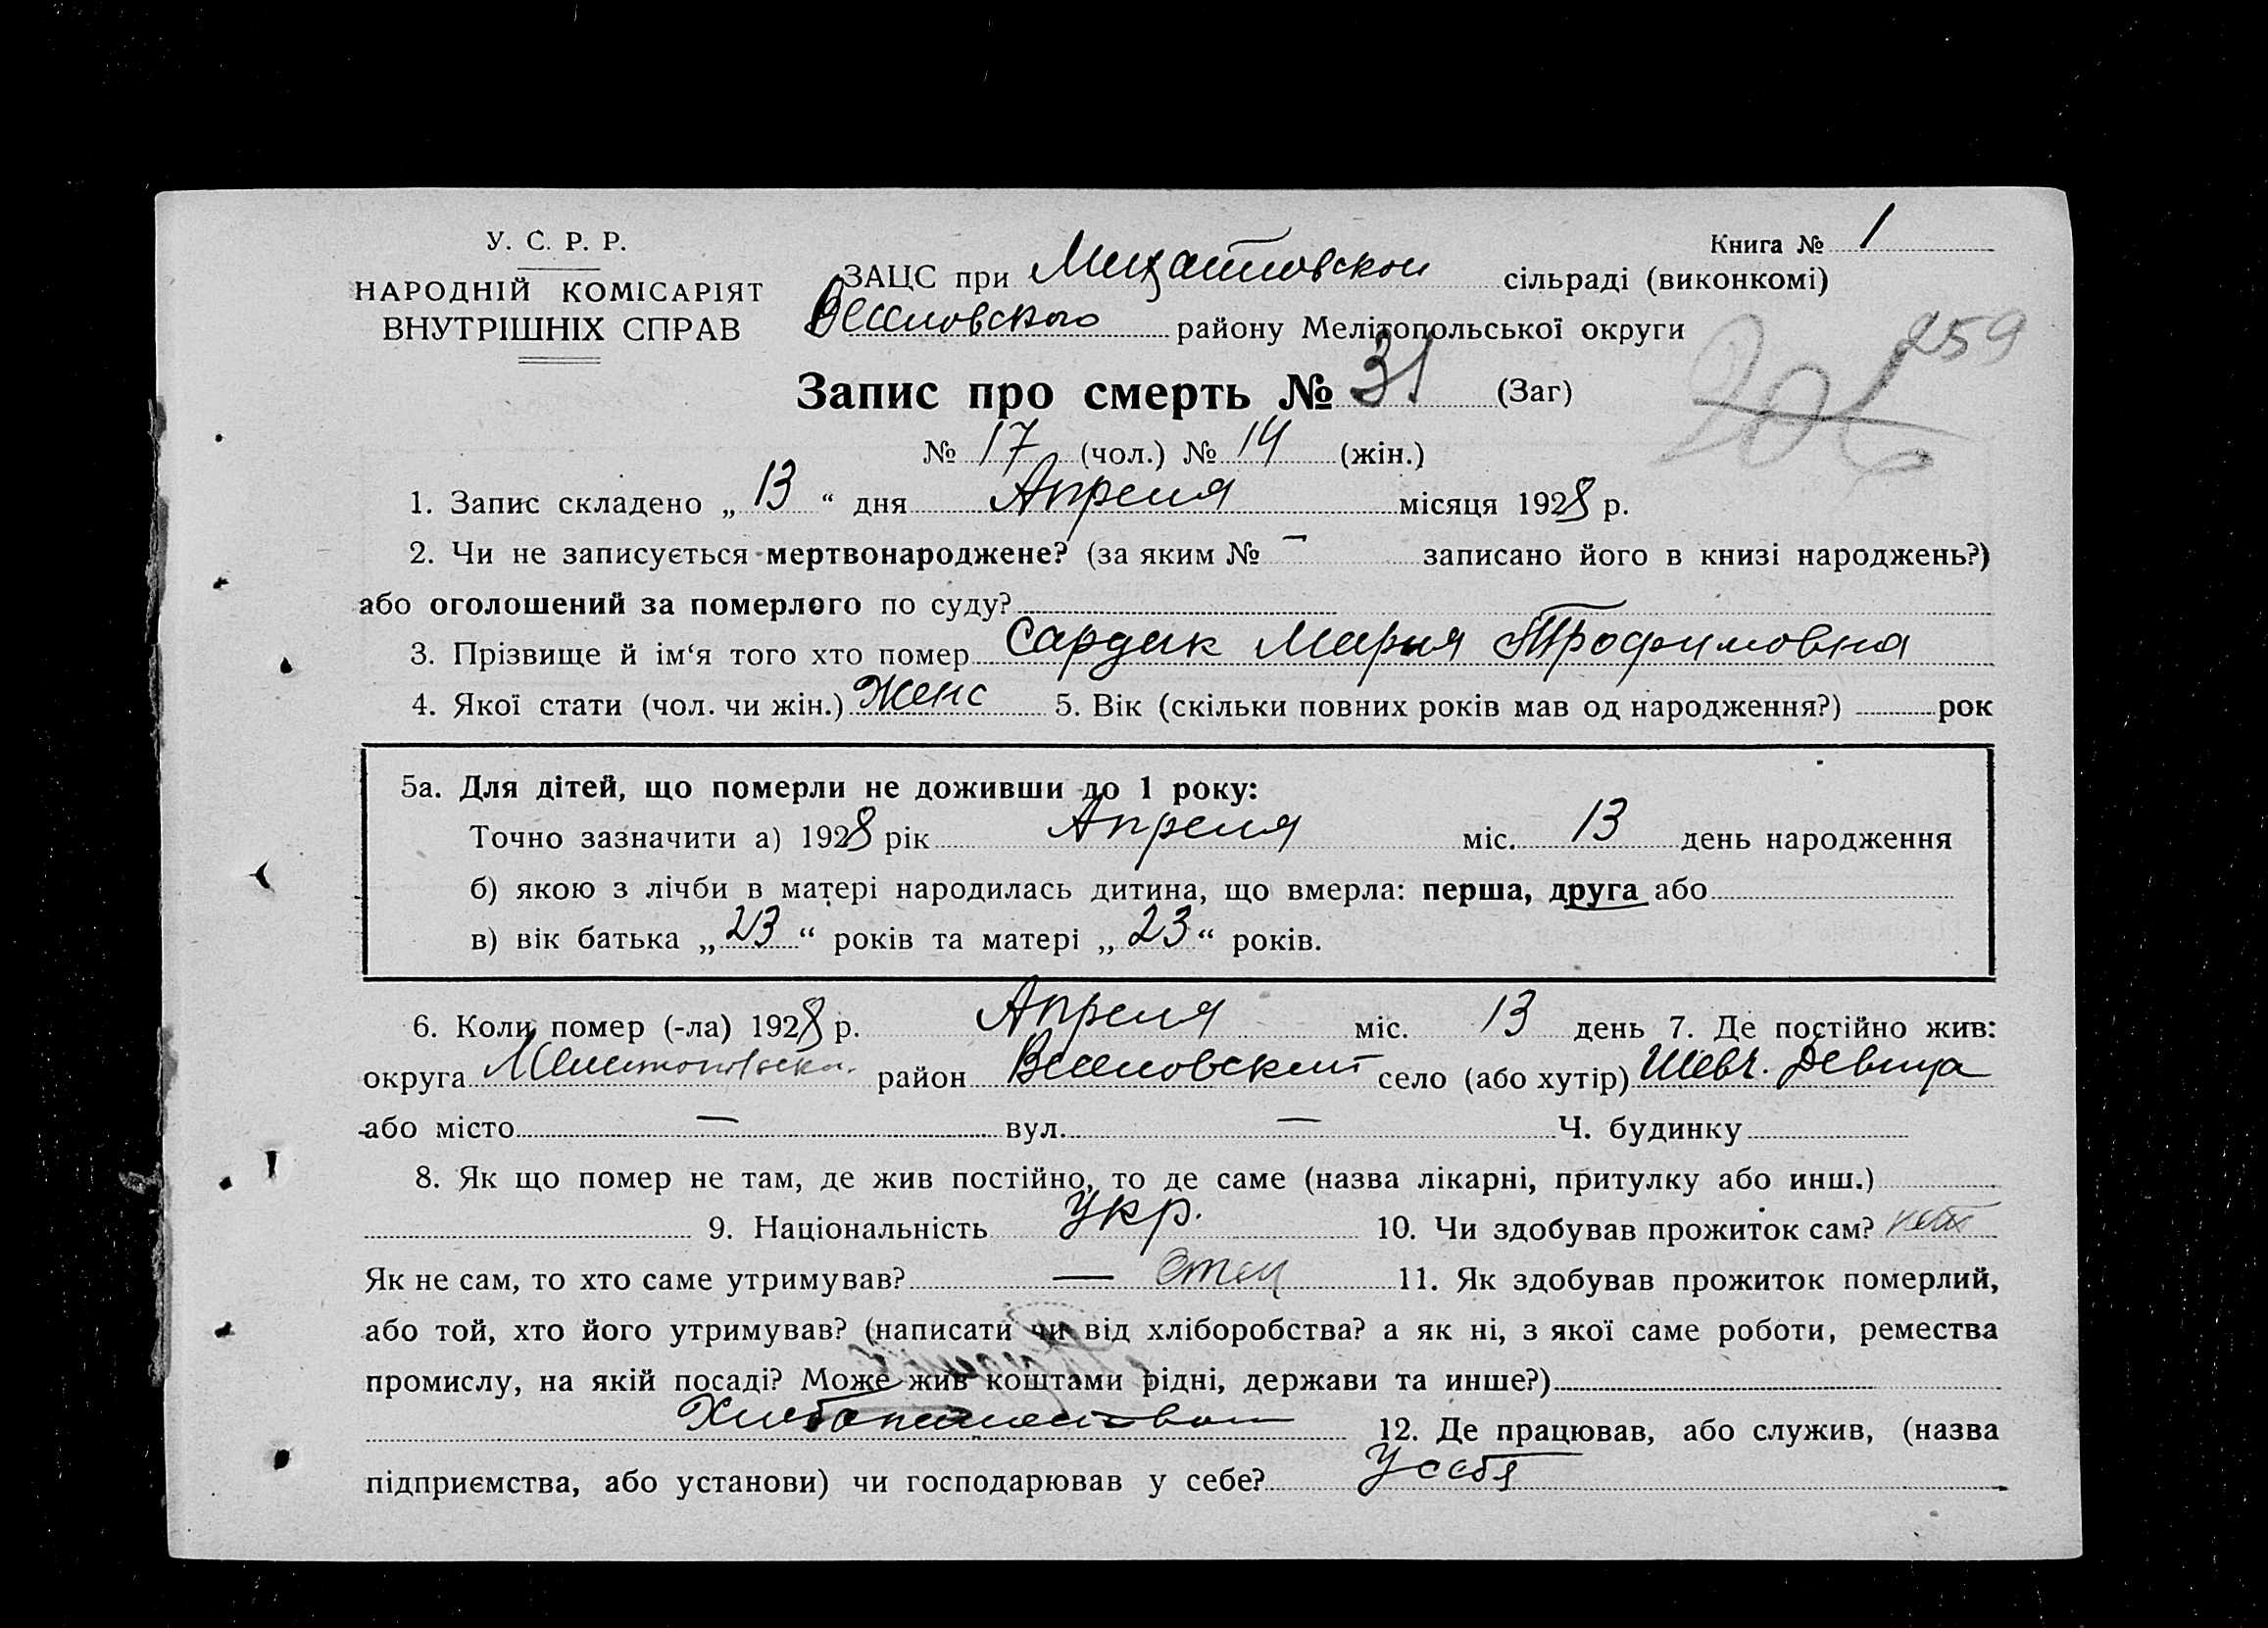 У. С. Р. Р.
НАРОДНІЙ КОМІСАРІЯТ
ВНУТРІШНІХ СПРАВ
Книга № 1
ЗАЦС при сільраді (виконкомі)
Веселовского району Мелітопольської округи
259
Запис про смерть № 31 (Заг)
№ 17 (чол.) № 14 (жін.)
1. Запис складено „ 13 “ дня Апреля місяця 1928 р.
2. Чи не записується мертвонароджене? (за яким № — записано його в книзі народжень?)
або оголошений за померлого по суду?
3. Прізвище й ім‘я того хто помер Сардак Мария Трофимовна
4. Якої стати (чол. чи жін.) Женс 5. Вік (скільки повних років мав од народження?) рок
5а. Для дітей, що померли не доживши до 1 року:
Точно зазначити а) 1928 рік Апреля міс. 13 день народження
б) якою з лічби в матері народилась дитина, що вмерла: перша, друга або
в) вік батька „ 23 “ років та матері „ 23 “ років.
6. Коли помер (-ла) 1928 р. Апреля міс. 13 день 7. Де постійно жив:
округа район Веселовский село (або хутір) Шевч.
або місто — вул. — Ч. будинку
8. Як що помер не там, де жив постійно, то де саме (назва лікарні, притулку або инш.)
9. Національність Укр. 10. Чи здобував прожиток сам? нет
Як не сам, то хто саме утримував? — Отец 11. Як здобував прожиток померлий,
або той, хто його утримував? (написати чи від хліборобства? а як ні, з якої саме роботи, ремества
промислу, на якій посаді? Може жив коштами рідні, держави та инше?)
Хлебопашеством 12. Де працював, або служив, (назва
підприємства, або установи) чи господарював у себе? У себя